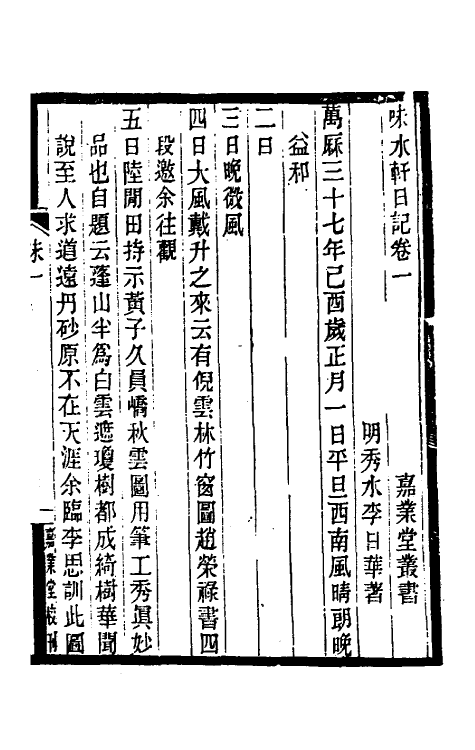 味水軒日記卷一
嘉業堂叢書
明秀水李日華著
萬厤三十七年己酉歲正月一日平旦西南風晴朗晚
益和
二日
三日晚微風
四日大風戴升之來云有倪雲林竹窗圖趙榮祿書四
段邀余往觀
五日陸閒田持示黃子久員嶠秋雲圖用筆工秀眞妙
品也自題云蓬山半爲白雲遮瓊樹都成綺樹華聞
說至人求道遠丹砂原不在天涯余臨李思訓此圖
味一
一
嘉業堂叢刊